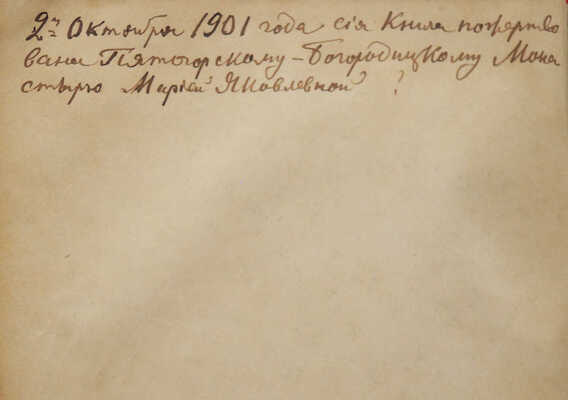 2го Октября 1901 года сія Книга пожертво
вана Пятогорскому-Богородицкому Мона
стырю Маріей Яковлевной ?